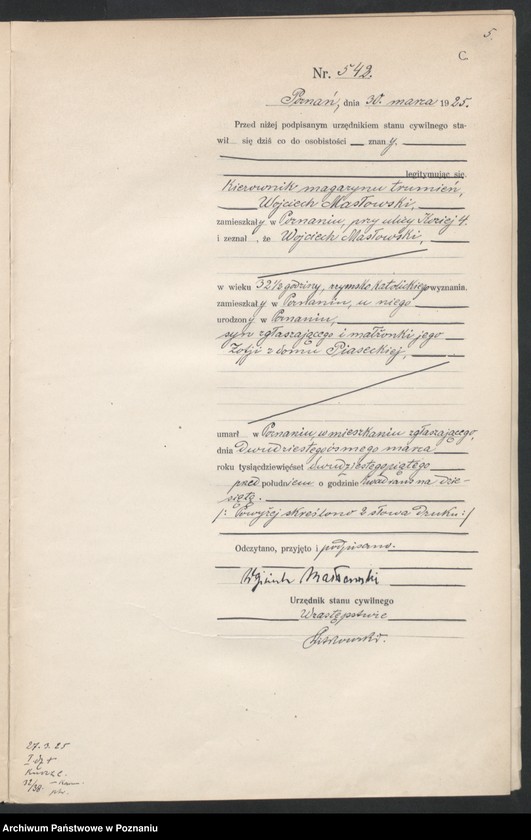 5.
C.
Nr. 542.
Poznań, dnia 30. marca 1925.
Przed niżej podpisanym urzędnikiem stanu cywilnego sta-
wił się dziś co do osobistości znany.
legitymując się
Kierownik magazynu trumień,
Wojciech Masłowski,
zamieszkały w Poznaniu, przy ulicy Koziej 4.
i zeznał, że Wojciech Masłowski,
w wieku 32½ godziny, rzymsko katolickiego wyznania.
zamieszkały w Poznaniu, u niego
urodzony w Poznaniu,
syn zgłaszającego i małżonki jego
Zofji z domu Piaseckiej,
umarł w Poznaniu, w mieszkaniu zgłaszającego,
dnia Dwudziestegoósmego marca
roku tysiącdziewięćset dwudziestegopiątego
przed południem o godzinie wpół na dzie-
siątą.
/: Powyżej skreślono 2 słowa druku :/
Odczytano, przyjęto i podpisano.
Wojciech Masłowski
Urzędnik stanu cywilnego
W zastępstwie
27. 3. 25
Archiwum Państwowe w Poznaniu